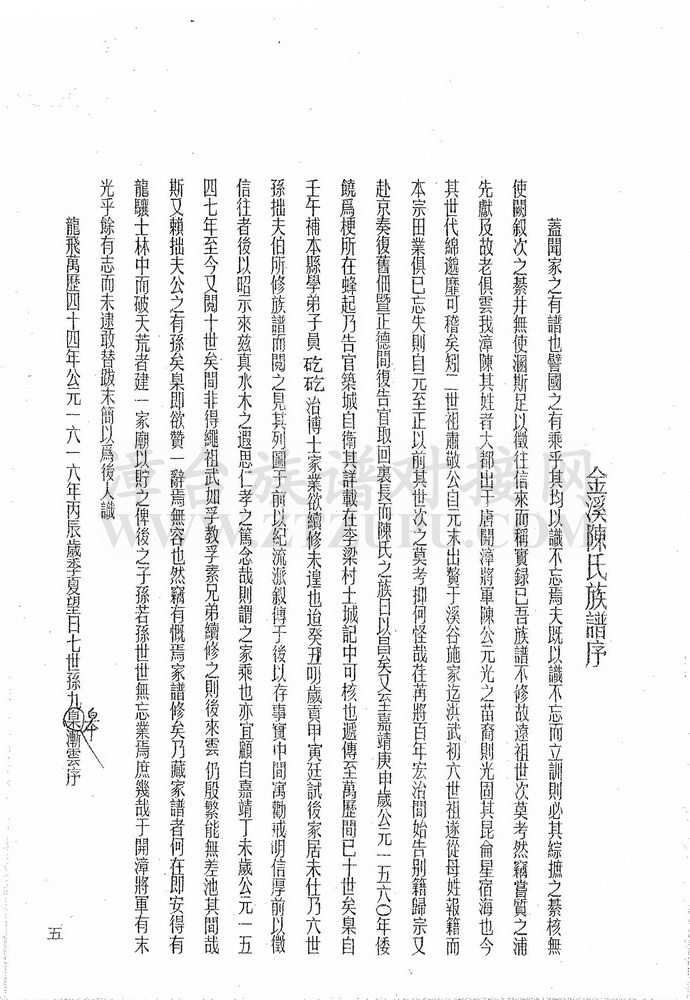 金溪陳氏族譜序
蓋聞家之有譜也譬國之有乘乎其均以識不忘焉夫既以識不忘而立訓則必其綜摭之綦核無
使闕叙次之綦井無使溷斯足以徵往信來而稱實録已吾族譜不修故遠祖世次莫考然竊嘗質之浦
先獻及故老俱雲我漳陳其姓者大都出于唐開漳將軍陳公元光之苗裔則光固其昆侖星宿海也今
其世代綿邈靡可稽矣矧二世祖肅敬公自元末出贅于溪谷施家迄洪武初六世祖遂從母姓報籍而
本宗田業俱已忘失則自元至正以前其世次之莫考抑何怪哉荏苒將百年宏治間始告别籍歸宗又
赴京奏復舊佃暨正德間復告官取回裏長而陳氏之族曰以昌矣又至嘉靖庚申歲公元一五六〇年倭
饒爲梗所在蜂起乃告官築城自衛其詳載在李梁村土城記中可核也遞傳至萬歷間已十世矣臯自
壬午補本縣學弟子員矻矻治博士家業欲續修未遑也迨癸丑明歲貢甲寅廷試後家居未仕乃六世
孫拙夫伯所修族譜而閲之見其列圖于前以紀流派叙傳于後以存事實中間寓勸戒明信厚前以徵
信往者後以昭示來兹真水木之遐思仁孝之篤念哉則謂之家乘也亦宜顧自嘉靖丁未歲公元一五
四七年至今又閲十世矣間非得繩祖武如孚教孚素兄弟續修之則後來雲仍殷繁能無差池其間哉
斯又賴拙夫公之有孫矣臯即欲贊一辭焉無容也然竊有慨焉家譜修矣乃藏家譜者何在即安得有
龍驤士林中而破天荒者建一家廟以貯之俾後之子孫若孫世世無忘業焉庶幾哉于開漳將軍有末
光乎餘有志而未逮敢替跋末簡以爲後人識
龍飛萬歷四十四年公元一六一六年丙辰歲季夏望日七世孫九臯漸雲序
皋
五